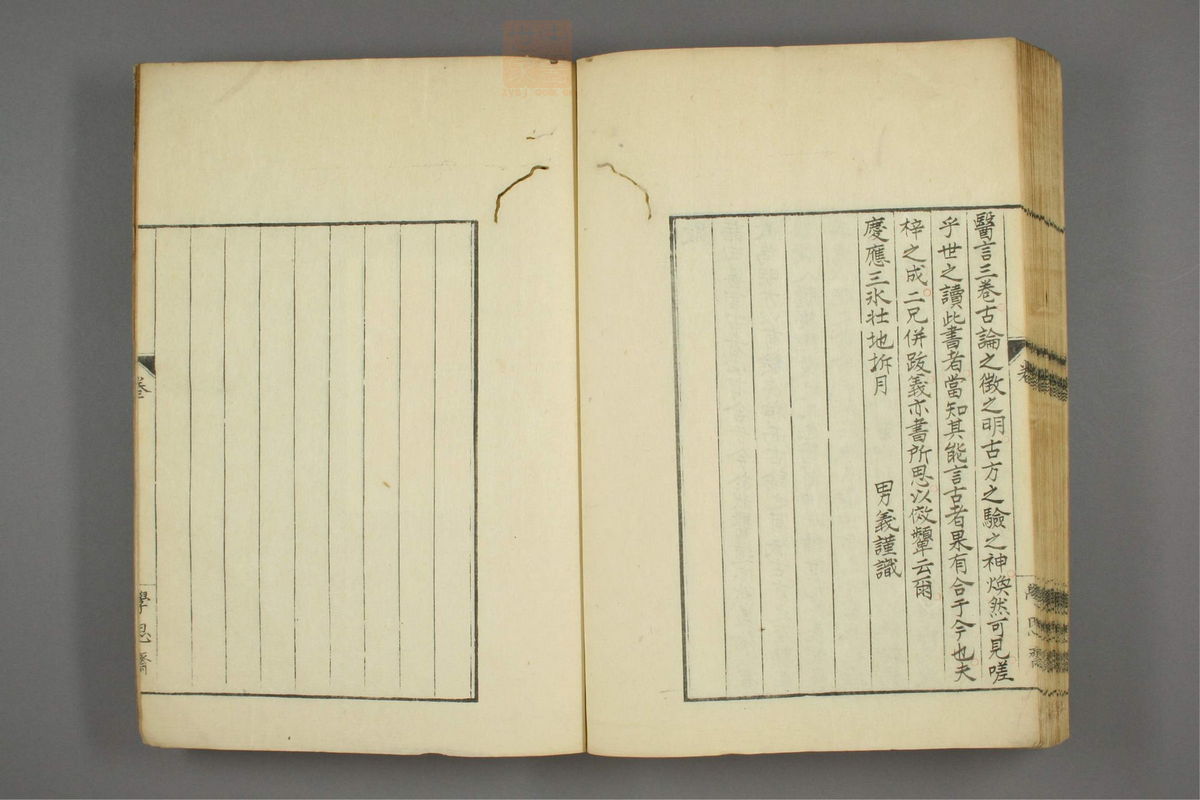 醫言三卷古論之徵之明古方之驗之神煥然可見嗟
乎世之讀此書者當知其能言古者果有合于今也夫
梓之成二兄併跋義亦書所思以傚顰云爾
慶應三氷壯地拆月
男義謹識
卷
卷三
學思齋